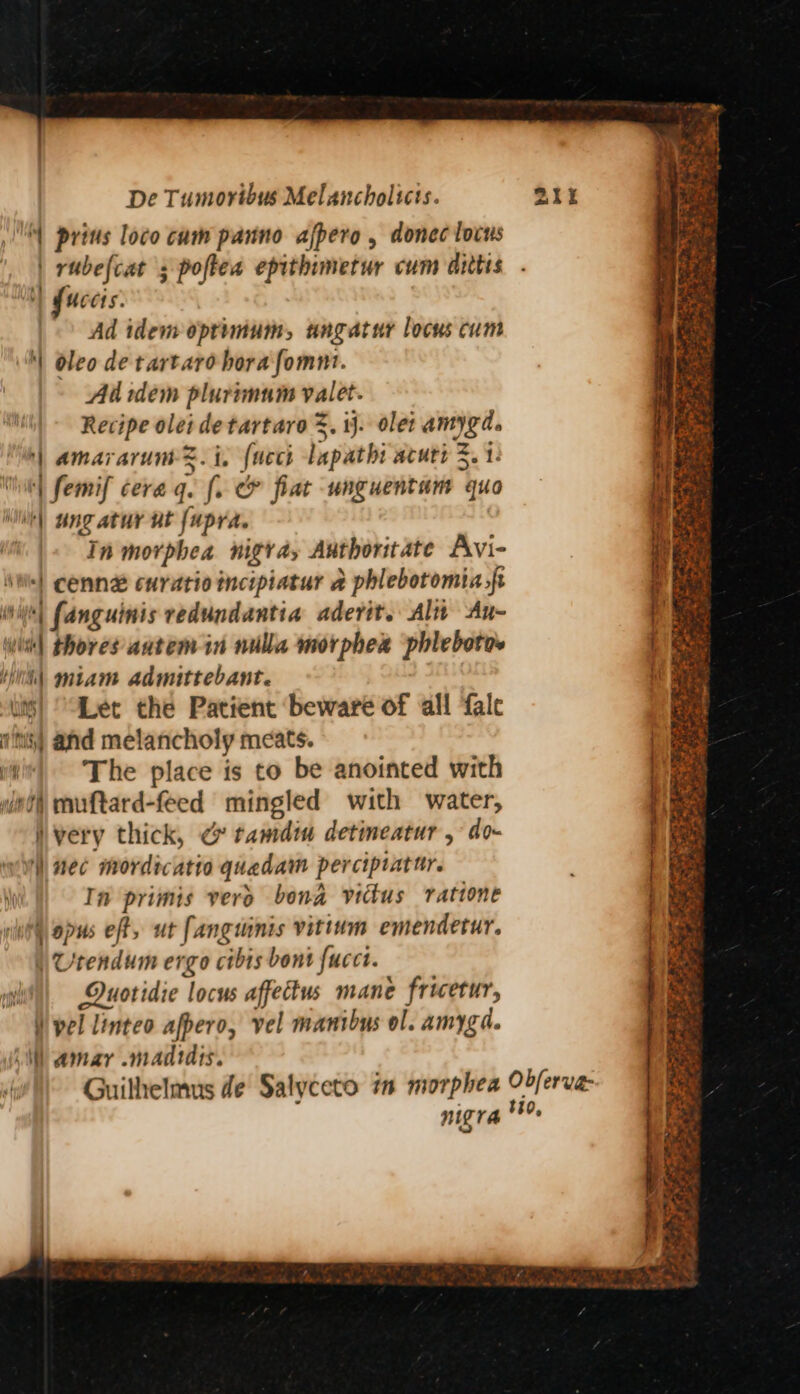 De Tumoribus Melancholicis. 211
prius loco cum panno aſpero, donec locus
rubeſcat ; poſtea epithimetur cum dictis
ſuccis.
Ad idem optimum, ungatur locus cum
oleo de tartaro hora ſomni.
Ad idem plurimum valet.
Recipe olei de tartaro ℥. ij. olei amygd.
amararum ℥. i. ſucci lapathi acuti ℥. i.
ſemiſ cera q. ſ. & fiat unguentum quo
ungatur ut ſupra.
In morphea nigra, Authoritate Avi-
cennæ curatio incipiatur à phlebotomia, ſi
ſanguinis redundantia aderit. Alii Au-
thores autem in nulla morphea phleboto-
miam admittebant.
Let the Patient beware of all ſalt
and melancholy meats.
The place is to be anointed with
muſtard-ſeed mingled with water,
very thick, & tamdiu detineatur, do-
nec mordicatio quædam percipiatur.
In primis verò bonâ victus ratione
opus eſt, ut ſanguinis vitium emendetur.
Utendum ergo cibis boni ſucci.
Quotidie locus affectus manè fricetur,
vel linteo aſpero, vel manibus ol. amygd.
amar. madidis.
Guilhelmus de Salyceto in morphea Obſerva-
nigra tio.